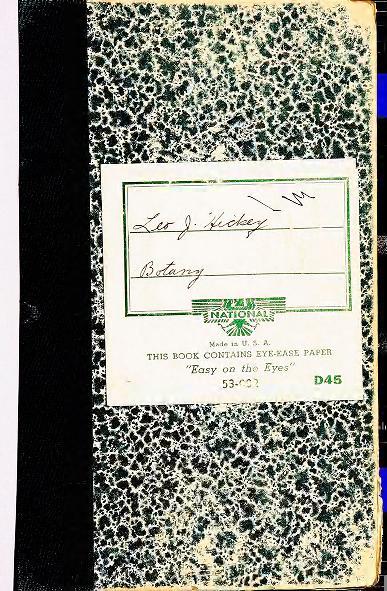 Leo J. Hickey
Botany
NATIONAL
Made in U. S. A.
THIS BOOK CONTAINS EYE-EASE PAPER
"Easy on the Eyes"
D45